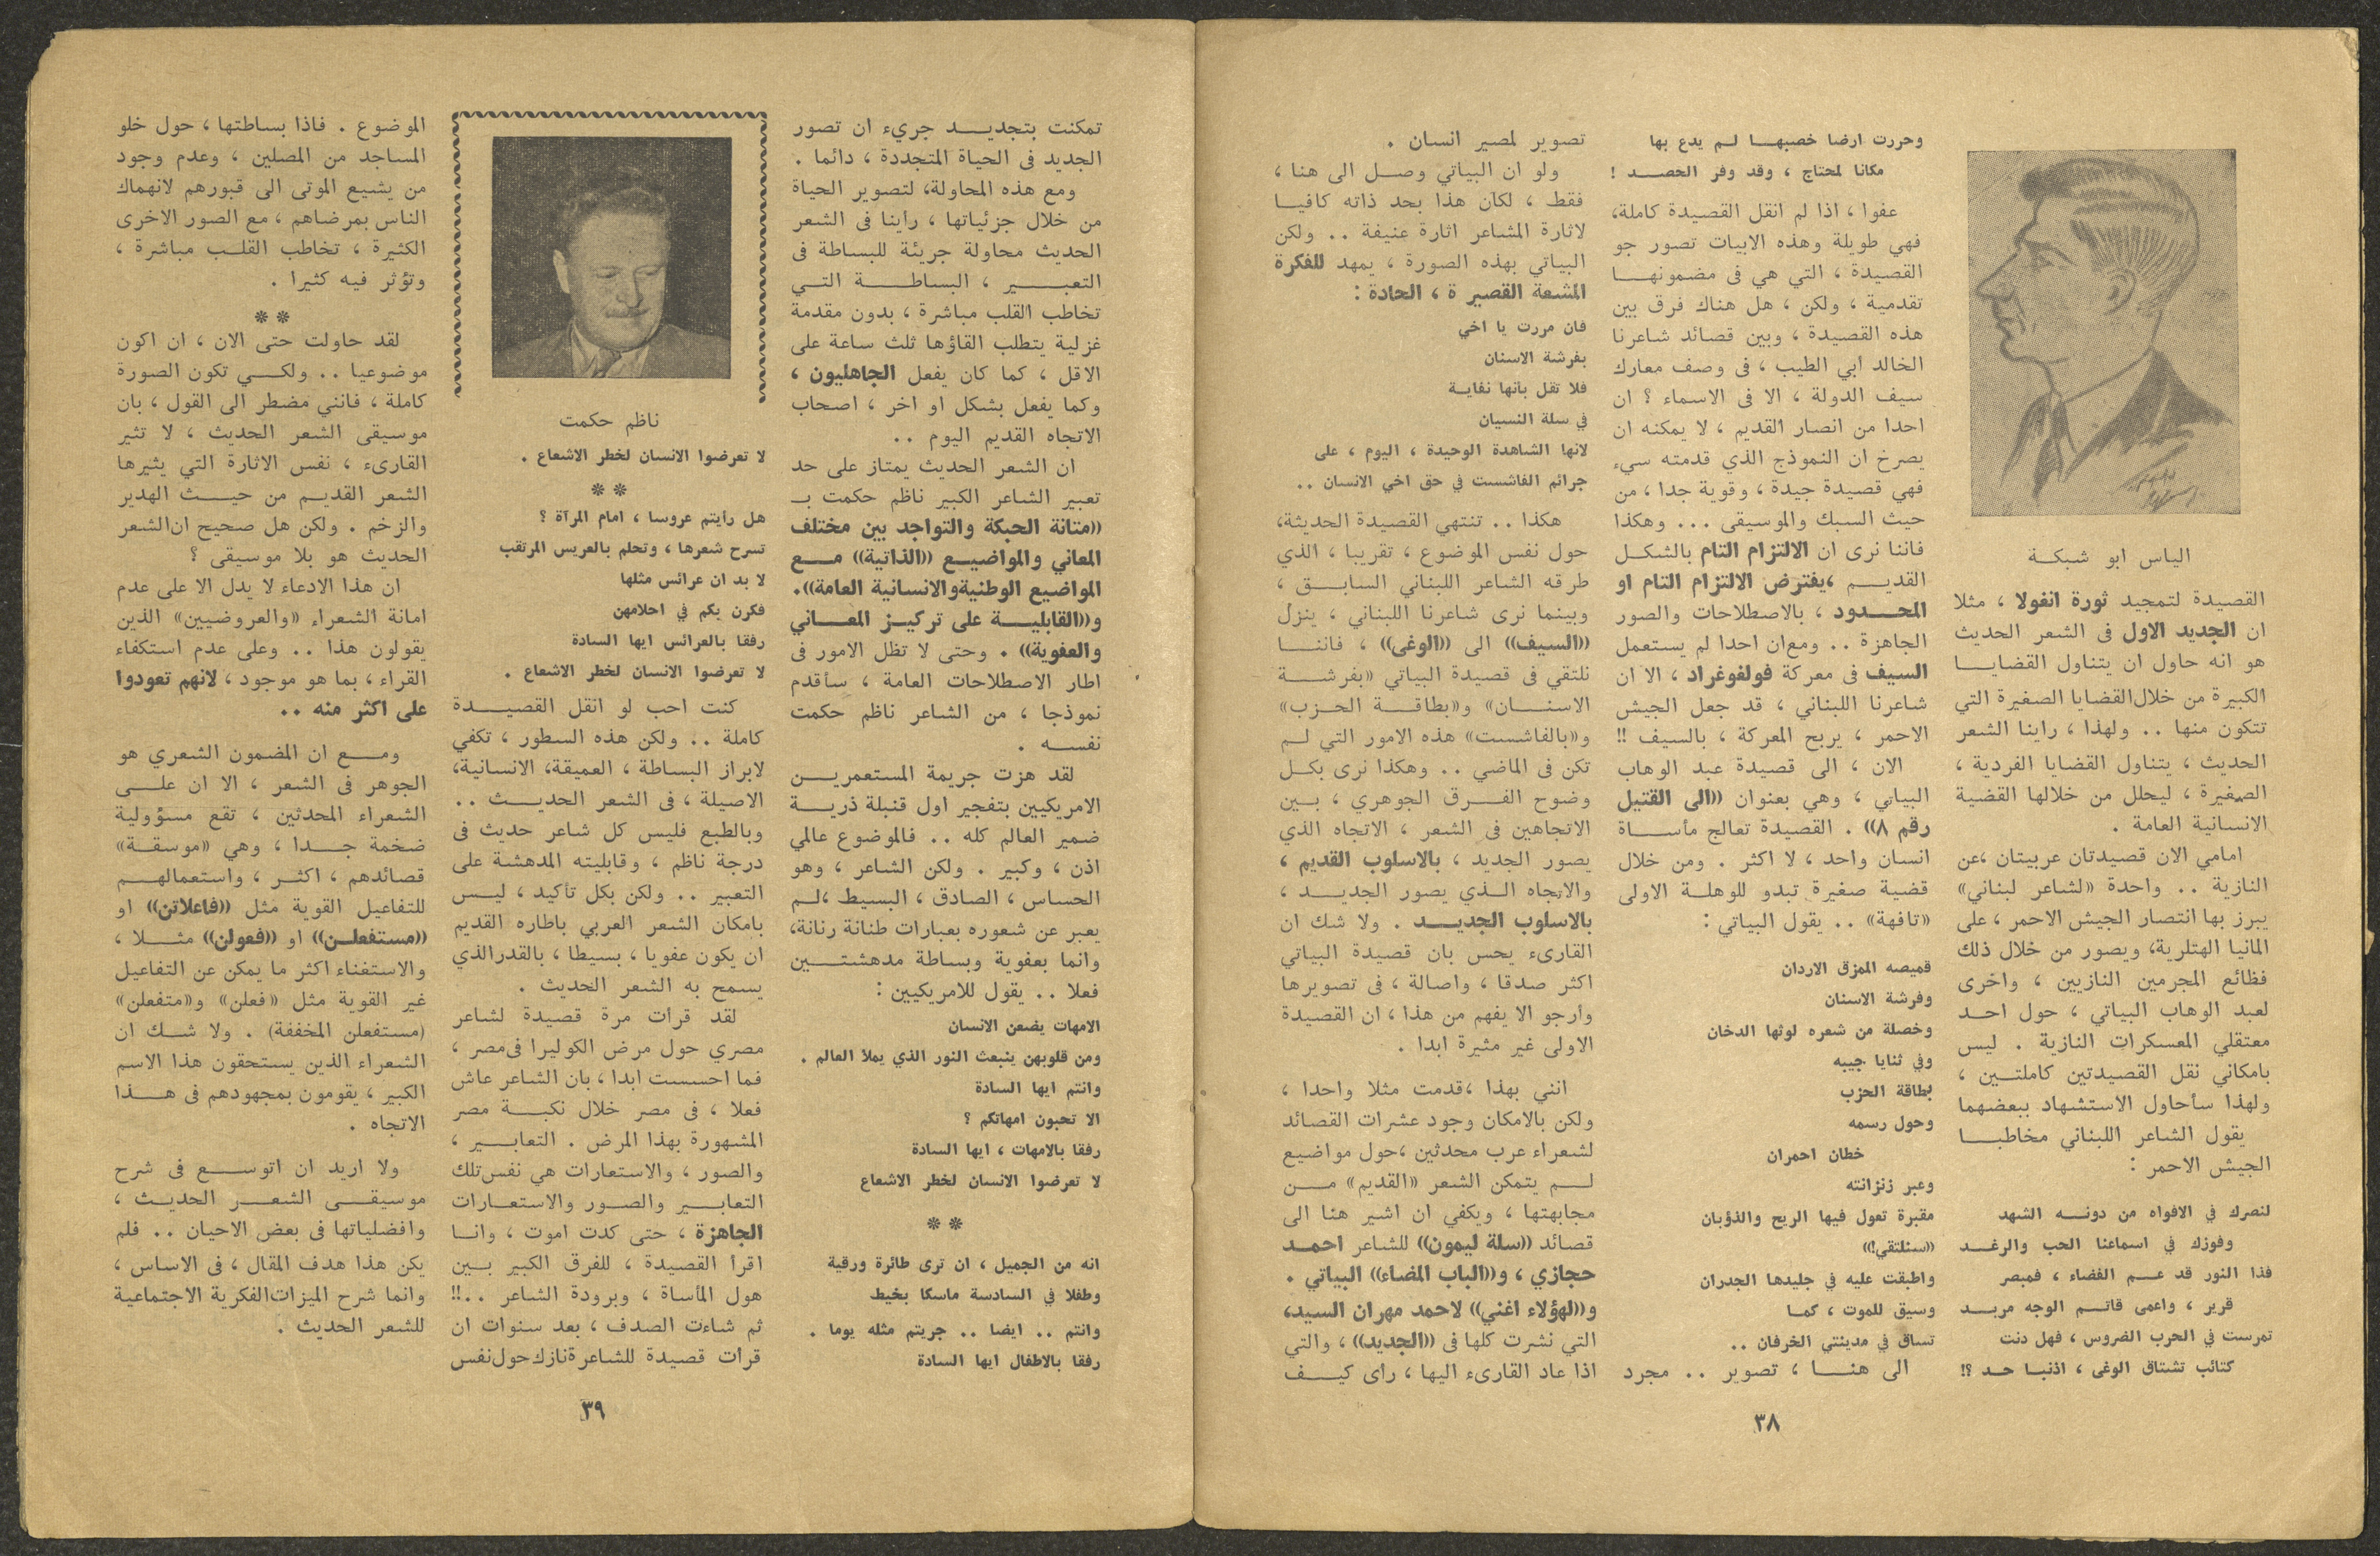 الياس ابو شبكة
القصيدة لتمجيد ثورة انغولا ، مثلا
ان الجديد الاول في الشعر الحديث
هو انه حاول ان يتناول القضايا
الكبيرة من خلال القضايا الصغيرة التي
تتكون منها .. ولهذا ، راينا الشعر
الحديث ، يتناول القضايا الفردية ،
الصغيرة ، ليحلل من خلالها القضية
الانسانية العامة .
امامي الان قصيدتان عربيتان ،عن
النازية .. واحدة «لشاعر لبناني»
يبرز بها انتصار الجيش الاحمر ، على
المانيا الهتلرية، ويصور من خلال ذلك
فظائع المجرمين النازيين ، واخرى
لعبد الوهاب البياتي ، حول احد
معتقلي المعسكرات النازية . ليس
بامكاني نقل القصيدتين كاملتين ،
ولهذا سأحاول الاستشهاد ببعضهما
يقول الشاعر اللبناني مخاطبا
الجيش الاحمر :
لنصرك في الافواه من دونه الشهد
وفوزك في اسماعنا الحب والرغد
فذا النور قد عم الفضاء ، فمبصر
قرير ، واعمى قاتم الوجه مربد
تمرست في الحرب الضروس ، فهل دنت
كتائب تشتاق الوغى ، اذنبا حد ؟!
وحررت ارضا خصبها لم يدع بها
مكانا لمحتاج ، وقد وفر الحصد !
عفوا ، اذا لم انقل القصيدة كاملة،
فهي طويلة وهذه الابيات تصور جو
القصيدة ، التي هي في مضمونها
تقدمية ، ولكن ، هل هناك فرق بين
هذه القصيدة ، وبين قصائد شاعرنا
الخالد ابي الطيب ، في وصف معارك
سيف الدولة ، الا في الاسماء ؟ ان
احدا من انصار القديم ، لا يمكنه ان
يصرخ ان النموذج الذي قدمته سيء
فهي قصيدة جيدة ، وقوية جدا ، من
حيث السبك والموسيقى ... وهكذا
فاننا نرى ان الالتزام التام بالشكل
القديم ،يفترض الالتزام التام او
المحدود ، بالاصطلاحات والصور
الجاهزة .. ومع ان احدا لم يستعمل
السيف في معركة فولغوغراد ، الا ان
شاعرنا اللبناني ، قد جعل الجيش
الاحمر ، يربح المعركة ، بالسيف !!
الان ، الى قصيدة عبد الوهاب
البياتي ، وهي بعنوان ((الى القتيل
رقم ٨)) . القصيدة تعالج مأساة
انسان واحد ، لا اكثر . ومن خلال
قضية صغيرة تبدو للوهلة الاولى
«تافهة» .. يقول البياتي :
قميصه الممزق الاردان
وفرشة الاسنان
وخصلة من شعره لوثها الدخان
وفي ثنايا جيبه
بطاقة الحزب
وحول رسمه
خطان احمران
وعبر زنزانته
مقبرة تعول فيها الريح والذؤبان
((سنلتقي!))
واطبقت عليه في جليدها الجدران
وسيق للموت ، كما
تساق في مدينتي الخرفان ..
الى هنا ، تصوير .. مجرد
تصوير لمصير انسان .
ولو ان البياتي وصل الى هنا ،
فقط ، لكان هذا بحد ذاته كافيا
لاثارة المشاعر اثارة عنيفة .. ولكن
البياتي بهذه الصورة ، يمهد للفكرة
المشعة القصير ة ، الحادة :
فان مررت يا اخي
بفرشة الاسنان
فلا تقل بأنها نفاية
في سلة النسيان
لانها الشاهدة الوحيدة ، اليوم ، على
جرائم الفاشست في حق اخي الانسان ..
هكذا .. تنتهي القصيدة الحديثة،
حول نفس الموضوع ، تقريبا ، الذي
طرقه الشاعر اللبناني السابق ،
وبينما نرى شاعرنا اللبناني ، ينزل
((السيف)) الى ((الوغى)) ، فاننا
نلتقي في قصيدة البياتي «بفرشة
الاسنان» و«بطاقة الحزب»
و«بالفاشست» هذه الامور التي لم
تكن في الماضي .. وهكذا نرى بكل
وضوح الفرق الجوهري ، بين
الاتجاهين في الشعر ، الاتجاه الذي
يصور الجديد ، بالاسلوب القديم ،
والاتجاه الذي يصور الجديد ،
بالاسلوب الجديد . ولا شك ان
القارىء يحس بان قصيدة البياتي
اكثر صدقا ، واصالة ، في تصويرها
وأرجو الا يفهم من هذا ، ان القصيدة
الاولى غير مثيرة ابدا .
انني بهذا ،قدمت مثلا واحدا ،
ولكن بالامكان وجود عشرات القصائد
لشعراء عرب محدثين ،حول مواضيع
لم يتمكن الشعر «القديم» من
مجابهتها ، ويكفي ان اشير هنا الى
قصائد ((سلة ليمون)) للشاعر احمد
حجازي ، و((الباب المضاء)) البياتي .
و((لهؤلاء اغني)) لاحمد مهران السيد،
التي نشرت كلها في ((الجديد)) ، والتي
اذا عاد القارىء اليها ، راى كيف
٣٨
تمكنت بتجديد جريء ان تصور
الجديد في الحياة المتجددة ، دائما .
ومع هذه المحاولة، لتصوير الحياة
من خلال جزئياتها ، راينا في الشعر
الحديث محاولة جريئة للبساطة في
التعبير ، البساطة التي
تخاطب القلب مباشرة ، بدون مقدمة
غزلية يتطلب القاؤها ثلث ساعة على
الاقل ، كما كان يفعل الجاهليون ،
وكما يفعل بشكل او اخر ، اصحاب
الاتجاه القديم اليوم ..
ان الشعر الحديث يمتاز على حد
تعبير الشاعر الكبير ناظم حكمت بـ
((متانة الحبكة والتواجد بين مختلف
المعاني والمواضيع ((الذاتية)) مع
المواضيع الوطنية والانسانية العامة)).
و((القابلية على تركيز المعاني
والعفوية)) . وحتى لا تظل الامور في
اطار الاصطلاحات العامة ، سأقدم
نموذجا ، من الشاعر ناظم حكمت
نفسه .
لقد هزت جريمة المستعمرين
الامريكيين بتفجير اول قنبلة ذرية
ضمير العالم كله .. فالموضوع عالمي
اذن ، وكبير . ولكن الشاعر ، وهو
الحساس ، الصادق ، البسيط ،لم
يعبر عن شعوره بعبارات طنانة رنانة،
وانما بعفوية وبساطة مدهشتين
فعلا .. يقول للامريكيين :
الامهات يضعن الانسان
ومن قلوبهن ينبعث النور الذي يملأ العالم .
وانتم ايها السادة
الا تحبون امهاتكم ؟
رفقا بالامهات ، ايها السادة
لا تعرضوا الانسان لخطر الاشعاع
**
انه من الجميل ، ان ترى طائرة ورقية
وطفلا في السادسة ماسكا بخيط
وانتم .. ايضا .. جريتم مثله يوما .
رفقا بالاطفال ايها السادة
ناظم حكمت
لا تعرضوا الانسان لخطر الاشعاع .
**
هل رأيتم عروسا ، امام المرآة ؟
تسرح شعرها ، وتحلم بالعريس المرتقب
لا بد ان عرائس مثلها
فكرن بكم في احلامهن
رفقا بالعرائس ايها السادة
لا تعرضوا الانسان لخطر الاشعاع .
كنت احب لو انقل القصيدة
كاملة .. ولكن هذه السطور ، تكفي
لابراز البساطة ، العميقة، الانسانية،
الاصيلة ، في الشعر الحديث ..
وبالطبع فليس كل شاعر حديث في
درجة ناظم ، وقابليته المدهشة على
التعبير .. ولكن بكل تأكيد ، ليس
بامكان الشعر العربي باطاره القديم
ان يكون عفويا ، بسيطا ، بالقدرالذي
يسمح به الشعر الحديث .
لقد قرأت مرة قصيدة لشاعر
مصري حول مرض الكوليرا في مصر ،
فما احسست ابدا ، بان الشاعر عاش
فعلا ، في مصر خلال نكبة مصر
المشهورة بهذا المرض . التعابير ،
والصور ، والاستعارات هي نفس تلك
التعابير والصور والاستعارات
الجاهزة ، حتى كدت اموت ، وانا
اقرأ القصيدة ، للفرق الكبير بين
هول المأساة ، وبرودة الشاعر ..!!
ثم شاءت الصدف ، بعد سنوات ان
قرأت قصيدة للشاعرة نازك حول نفس
الموضوع . فاذا بساطتها ، حول خلو
المساجد من المصلين ، وعدم وجود
من يشيع الموتى الى قبورهم لانهماك
الناس بمرضاهم ، مع الصور الاخرى
الكثيرة ، تخاطب القلب مباشرة ،
وتؤثر فيه كثيرا .
**
لقد حاولت حتى الان ، ان اكون
موضوعيا .. ولكي تكون الصورة
كاملة ، فانني مضطر الى القول ، بان
موسيقى الشعر الحديث ، لا تثير
القارىء ، نفس الاثارة التي يثيرها
الشعر القديم من حيث الهدير
والزخم . ولكن هل صحيح ان الشعر
الحديث هو بلا موسيقى ؟
ان هذا الادعاء لا يدل الا على عدم
امانة الشعراء «والعروضيين» الذين
يقولون هذا .. وعلى عدم استكفاء
القراء ، بما هو موجود ، لانهم تعودوا
على اكثر منه ..
ومع ان المضمون الشعري هو
الجوهر في الشعر ، الا ان على
الشعراء المحدثين ، تقع مسؤولية
ضخمة جدا ، وهي «موسقة»
قصائدهم ، اكثر ، واستعمالهم
للتفاعيل القوية مثل ((فاعلاتن)) او
((مستفعلن)) او ((فعولن)) مثلا ،
والاستغناء اكثر ما يمكن عن التفاعيل
غير القوية مثل «فعلن» و«متفعلن»
(مستفعلن المخففة) . ولا شك ان
الشعراء الذين يستحقون هذا الاسم
الكبير ، يقومون بمجهودهم في هذا
الاتجاه .
ولا اريد ان اتوسع في شرح
موسيقى الشعر الحديث ،
وافضلياتها في بعض الاحيان .. فلم
يكن هذا هدف المقال ، في الاساس ،
وانما شرح الميزات الفكرية الاجتماعية
للشعر الحديث .
٣٩